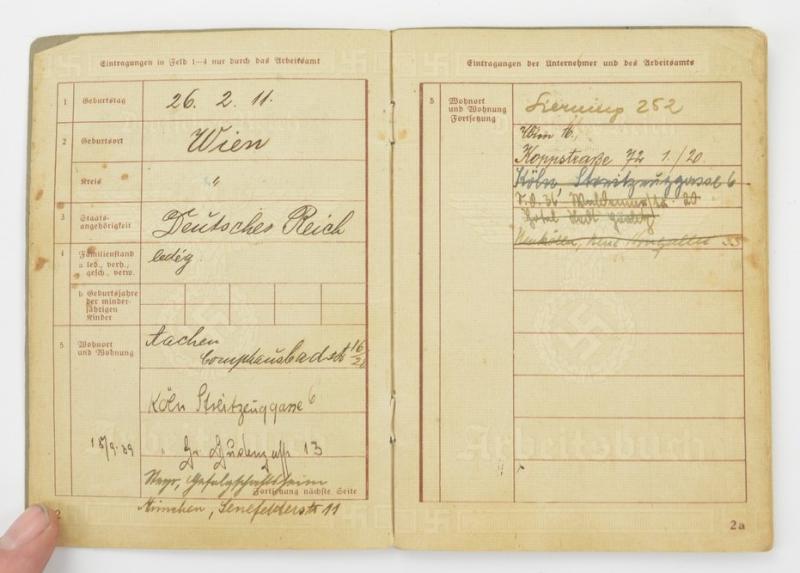 Eintragungen in Feld 1–4 nur durch das Arbeitsamt
1 Geburtstag 26. 2. 11.
2 Geburtsort Wien
Kreis "
3 Staats-
angehörigkeit Deutsches Reich
4 Familienstand ledig
a led., verh.,
gesch., verw.
b Geburtsjahre
der minder-
jährigen
Kinder
5 Wohnort
und Wohnung
Aachen
Comphausbadstr 16/20
Köln Streitzeuggasse 6
18/9.39 " Gr. 13
Gefolgschaftsheim
Fortsetzung nächste Seite
München, Senefelderstr 11
2
Eintragungen der Unternehmer und des Arbeitsamts
5 Wohnort
und Wohnung
Fortsetzung
Sierning 252
Wien 16,
Koppstraße 72 1./20.
Köln, Streitzeuggasse 6
20
Hotel Stadt
Neukölln, 33
Arbeitsbuch
2a